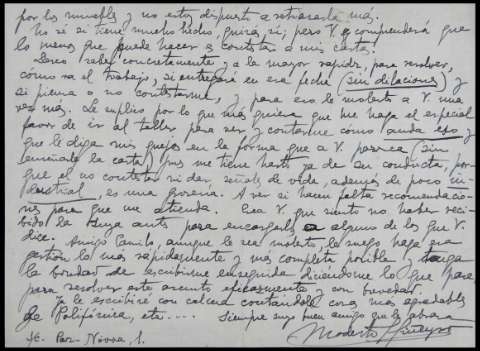 por los muebles y no estoy dispuesto a retrasarla más.
No sé si tiene mucho hecho, quizá sí; pero V. comprenderá que
lo menos que puede hacer es contestar a mis cartas.
Deseo saber concretamente y a la mayor rapidez, para resolver,
cómo va el trabajo, si entregará en esa fecha (sin dilaciones) y
si piensa o no contestarme, y para eso le molesto a V. una
vez más. Le suplico por lo que más quiera que me haga el especial
favor de ir al taller, para ver y contarme cómo anda eso y
que le diga mis quejas en la forma que a V. parezca (sin
enseñarle la carta) pues me tiene harto ya de su conducta, por
que el no contestar ni dar señales de vida, además de poco in-
dustrial, es una grosería. A ver si hacen falta recomendacio-
nes para que me atienda. Crea V. que siento no haber reci-
bido la suya antes para encargarlo a alguno de los que V.
dice. Amigo Camilo, aunque le sea molesto, le ruego haga esa
gestión lo más rapidamente y más completa posible y tenga
la bondad de escribirme enseguida diciendome lo que pase
para resolver este asunto eficazmente y con brevedad.
Ya le escribiré con calma contándole cosas más agradables
de Polifónica, etc....  Siempre suyo buen amigo que le abraza
s/c. Paz-Novoa, 1.
Modesto